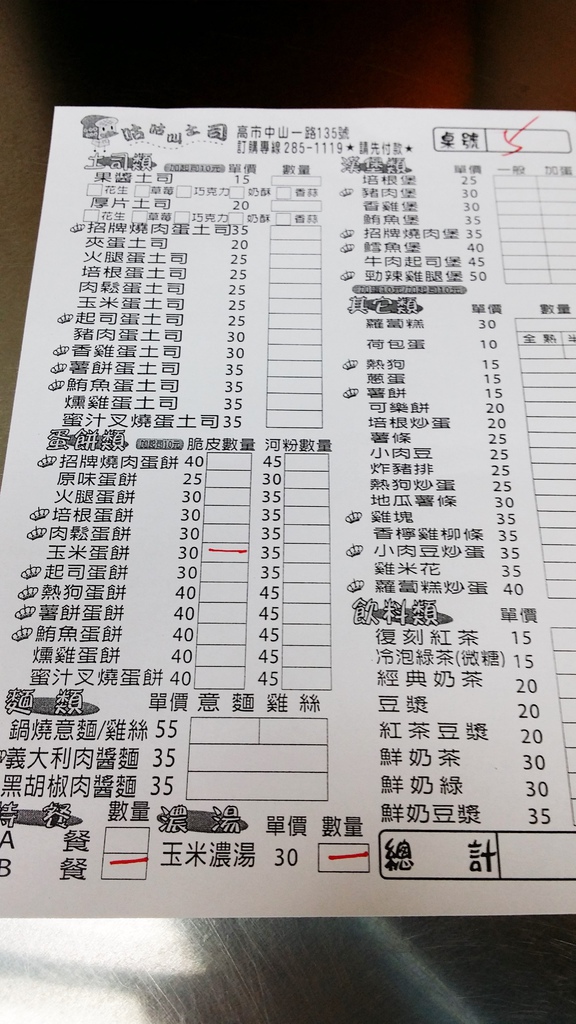 咕咕叫土司 高市中山一路135號 桌號
訂購專線285-1119★請先付款★
土司類 加起司10元 單價 數量
果醬土司 15
花生 草莓 巧克力 奶酥 香蒜
厚片土司 20
花生 草莓 巧克力 奶酥 香蒜
招牌燒肉蛋土司 35
夾蛋土司 20
火腿蛋土司 25
培根蛋土司 25
肉鬆蛋土司 25
玉米蛋土司 25
起司蛋土司 25
豬肉蛋土司 30
香雞蛋土司 30
薯餅蛋土司 35
鮪魚蛋土司 35
燻雞蛋土司 35
蜜汁叉燒蛋土司 35
蛋餅類 加起司10元 脆皮數量 河粉數量
招牌燒肉蛋餅 40 45
原味蛋餅 25 30
火腿蛋餅 30 35
培根蛋餅 30 35
肉鬆蛋餅 30 35
玉米蛋餅 30 一 35
起司蛋餅 30 35
熱狗蛋餅 40 45
薯餅蛋餅 40 45
鮪魚蛋餅 40 45
燻雞蛋餅 40 45
蜜汁叉燒蛋餅 40 45
麵類 單價 意麵 雞絲
鍋燒意麵/雞絲 55
義大利肉醬麵 35
黑胡椒肉醬麵 35
特餐 數量
A 餐
B 餐 一
濃湯 單價 數量
玉米濃湯 30 一
漢堡類 單價 一般 加蛋
培根堡 25
豬肉堡 30
香雞堡 30
鮪魚堡 35
招牌燒肉堡 35
鱈魚堡 40
牛肉起司堡 45
勁辣雞腿堡 50
加蛋10元/加起司10元
其它類 單價 數量
蘿蔔糕 30
全熟 半
荷包蛋 10
熱狗 15
蔥蛋 15
薯餅 15
可樂餅 20
培根炒蛋 20
薯條 25
小肉豆 25
炸豬排 25
熱狗炒蛋 25
地瓜薯條 30
雞塊 35
香檸雞柳條 35
小肉豆炒蛋 35
雞米花 35
蘿蔔糕炒蛋 40
飲料類 單價
復刻紅茶 15
冷泡綠茶(微糖) 15
經典奶茶 20
豆漿 20
紅茶豆漿 20
鮮奶茶 30
鮮奶綠 30
鮮奶豆漿 35
總計